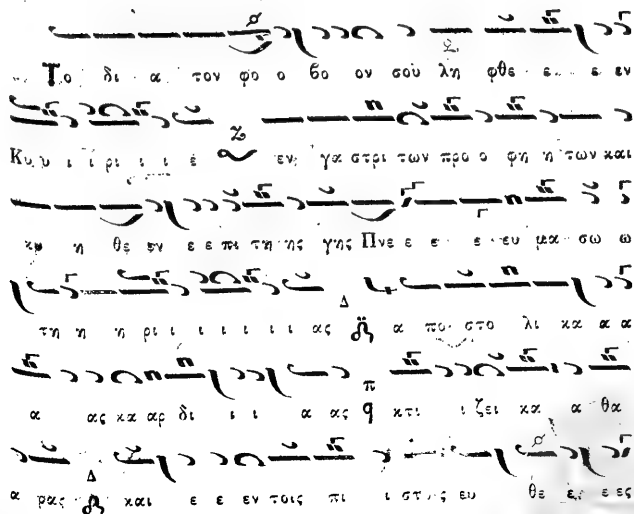 Το δι α τον φο ο βο ον σου λη φθε ε ε εν
Κυ υ ι ι ρι ι ι ε εν γα στρι των προ ο φη η των και
κυ η θε εν ε ε πι τη ης γης Πνε ε ε ε ευ μα σω ω
τη η η ρι ι ι ι ι ι ι ας α πο στο λι κα α α
α ας κα αρ δι ι ι α ας κτι ι ζει κα α θα
α ρας και ε ε εν τοις πι ι στ ς ευ θε ε ε ες